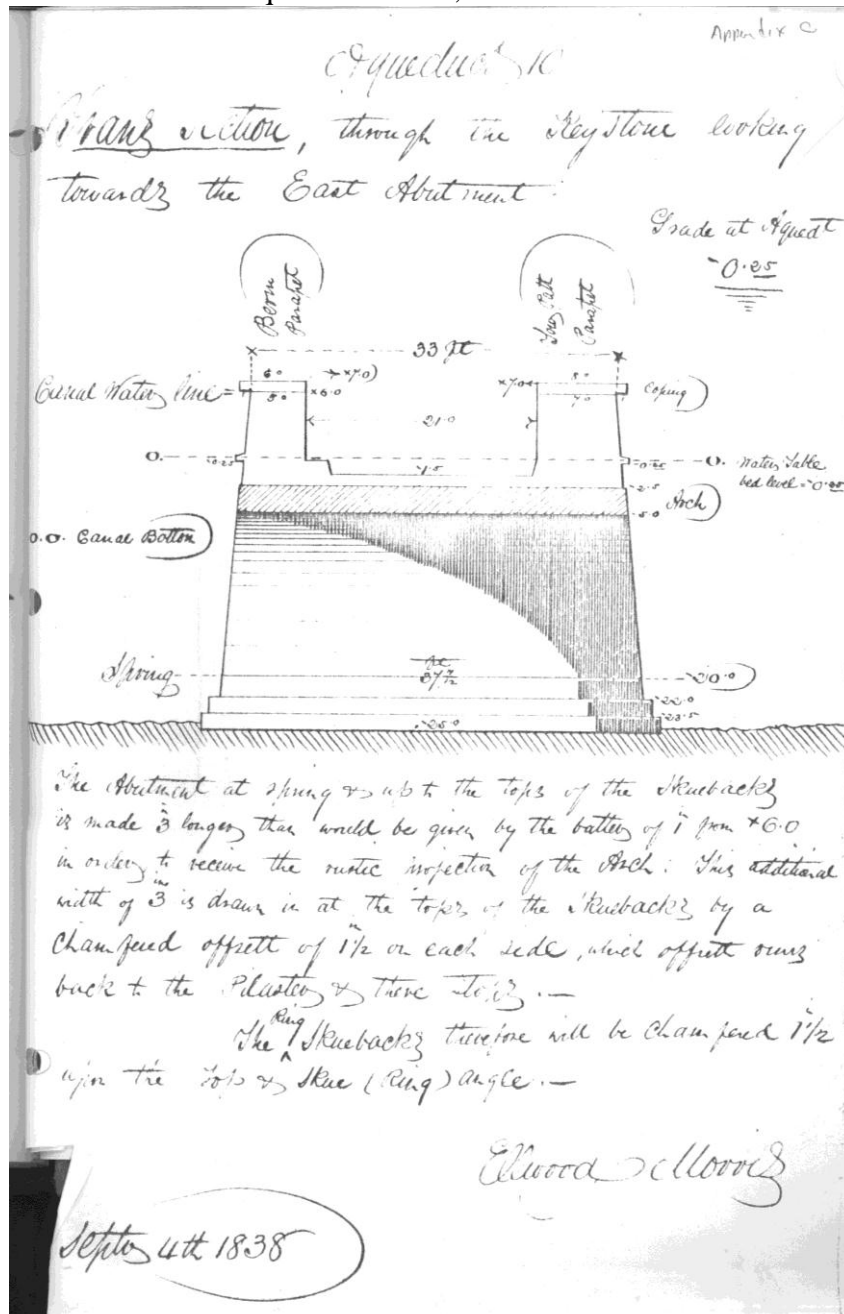 Appendix C
Aqueduct 10
Trans Section, through the Keystone looking
towards the East Abutment.
Grade at Aquedt
-0.25
Berm
Parapet
Tow Path
Parapet
33 ft
Canal Water line =
6.0
+7.0)
5.0
+6.0
+7.0
8.0
7.0
Coping)
21.0
0.
-0.25
-1.5
-0.25
0. Water Table
bed level = -0.25
-2.5
Arch)
-5.0
0.0. Canal Bottom)
Spring
-20.0
-22.0
-23.5
-25.0
The Abutment at spring & up to the tops of the Skuebacks
is made 3" longer than would be given by the batter of 1" from +6.0
in order to receive the rustic projection of the Arch: This additional
width of 3 ins is drawn in at the tops of the Skuebacks by a
Champered offsett of 1"1/2 on each side, which offsett runs
back to the Pilasters & there stops.—
The Ring Skuebacks therefore will be Champered 1"1/2
upon the top & Skue (Ring) angle.—
Ellwood Morris
Septr 4th 1838